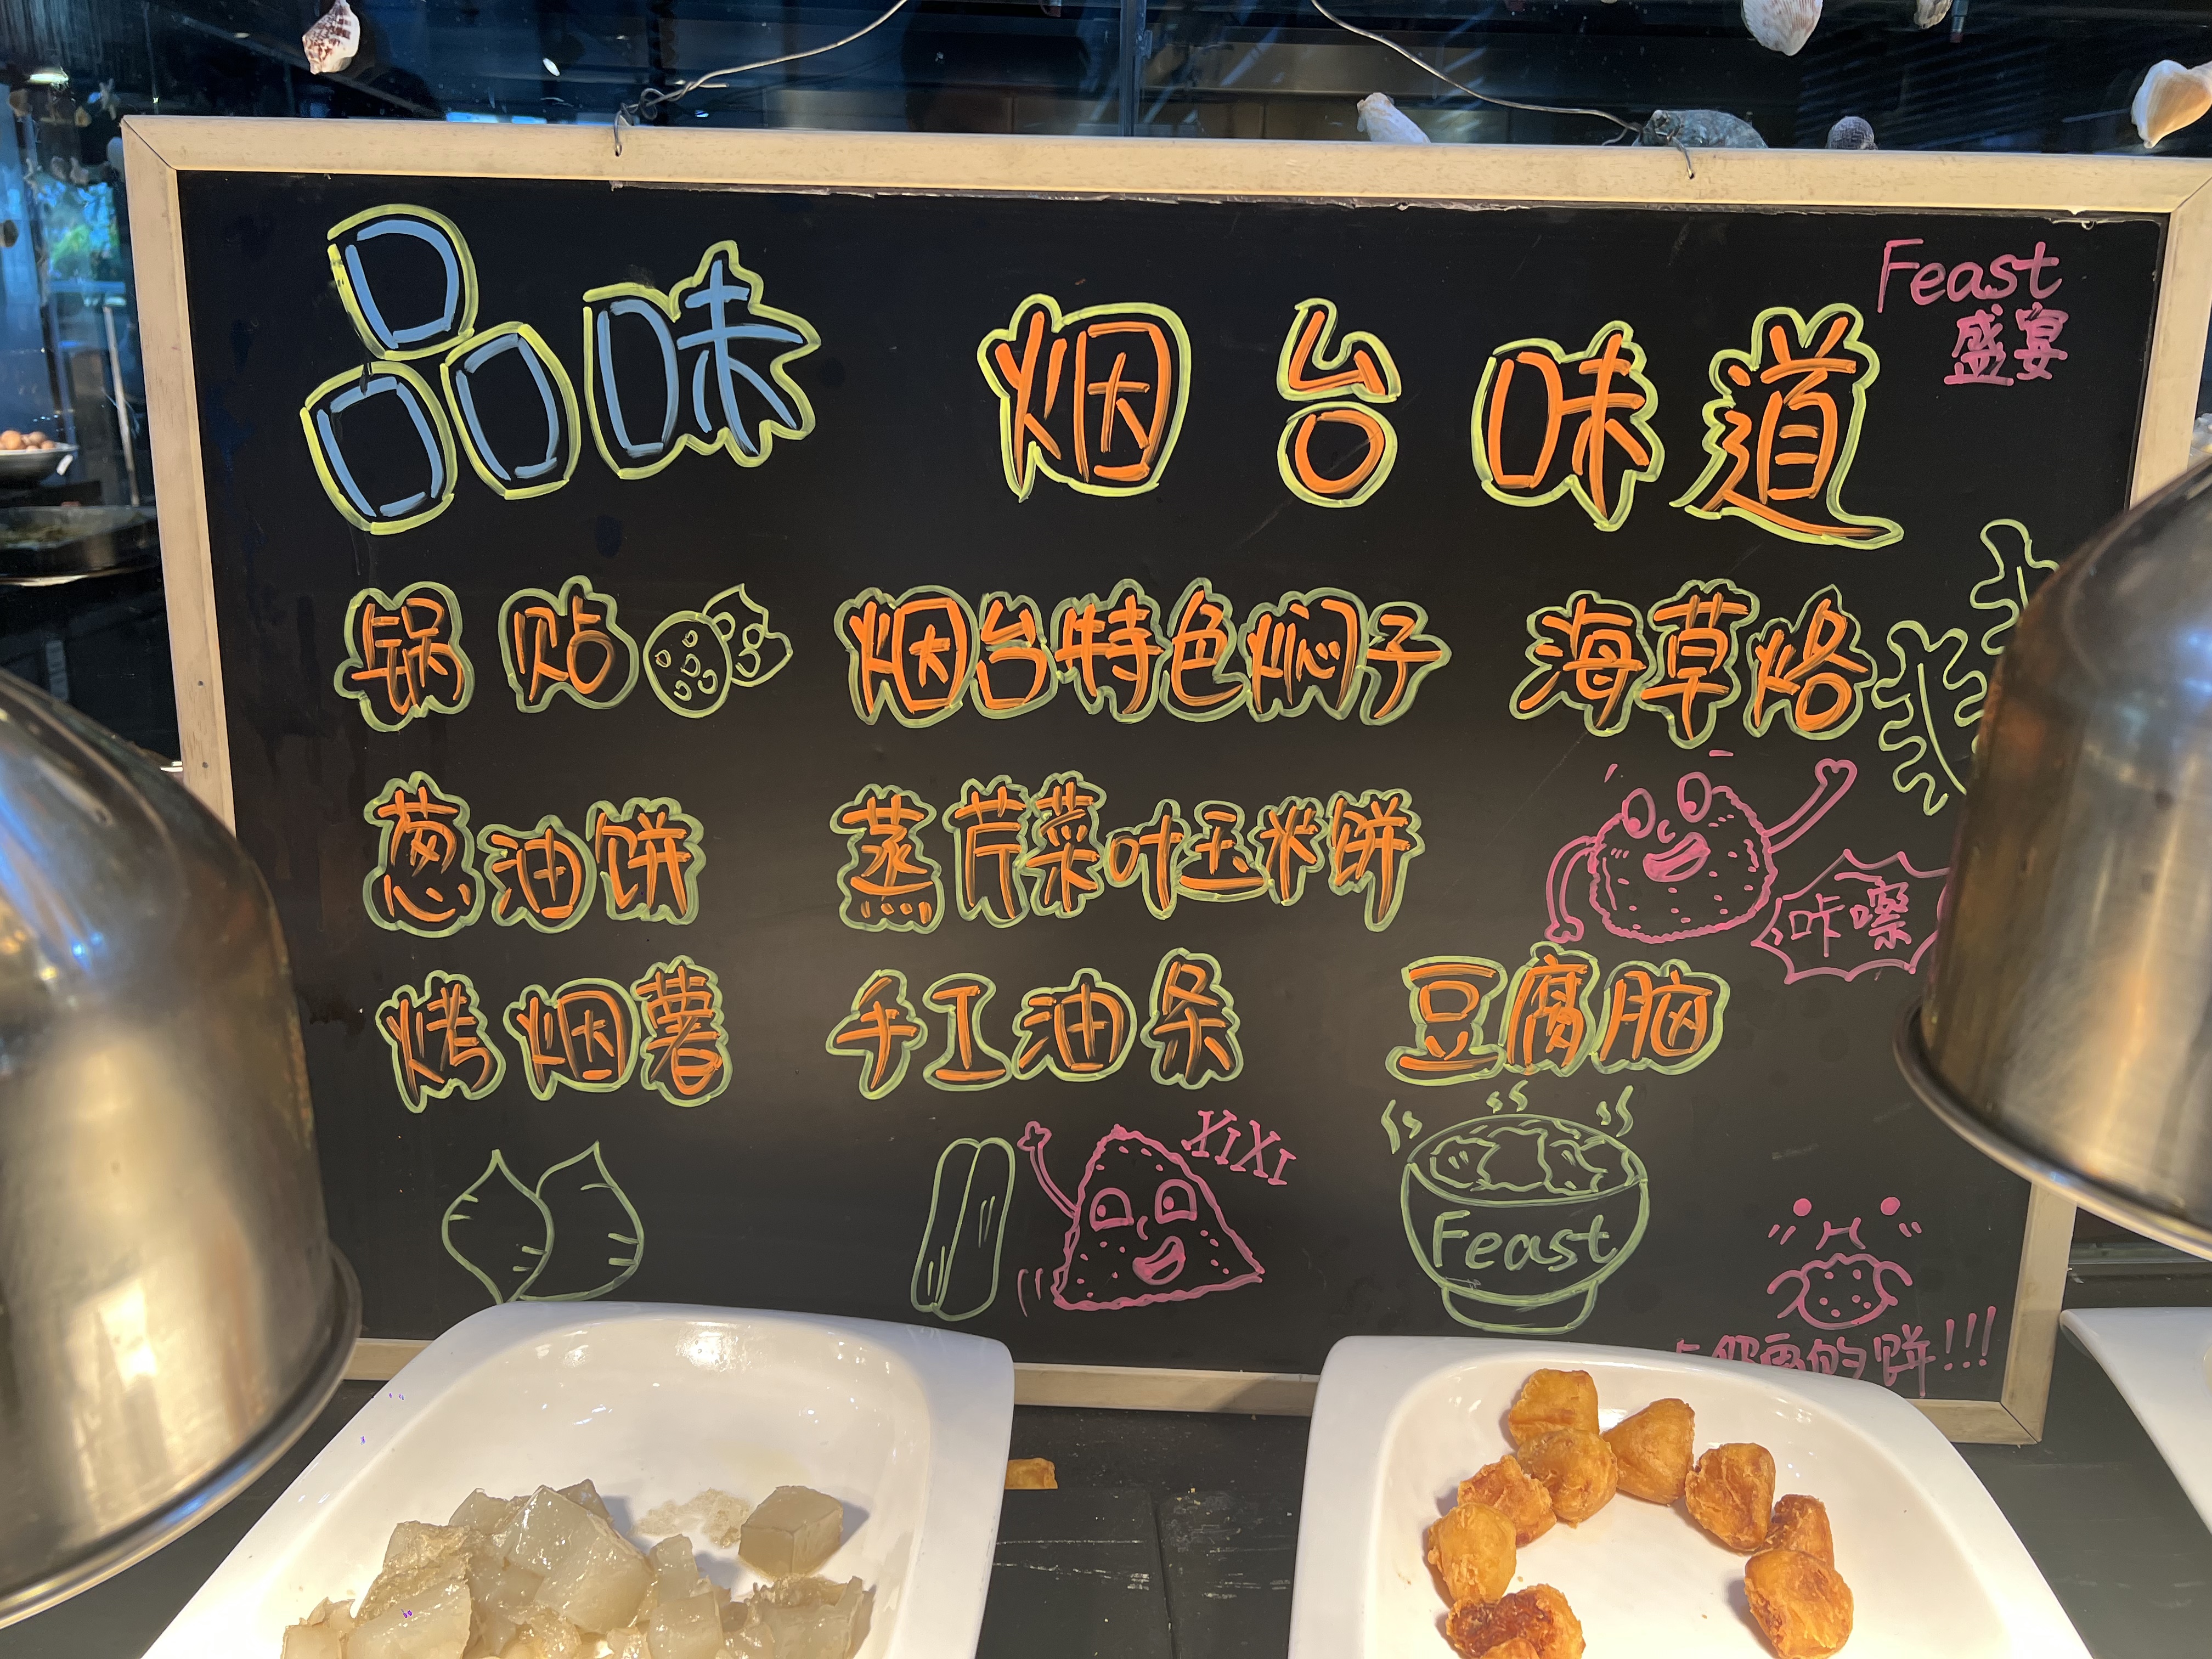 Feast
盛宴
品味 烟台味道
锅贴 烟台特色焖子 海草烙
葱油饼 蒸芹菜叶玉米饼
咔嚓
烤烟薯 手工油条 豆腐脑
XIXI
Feast
的饼!!!